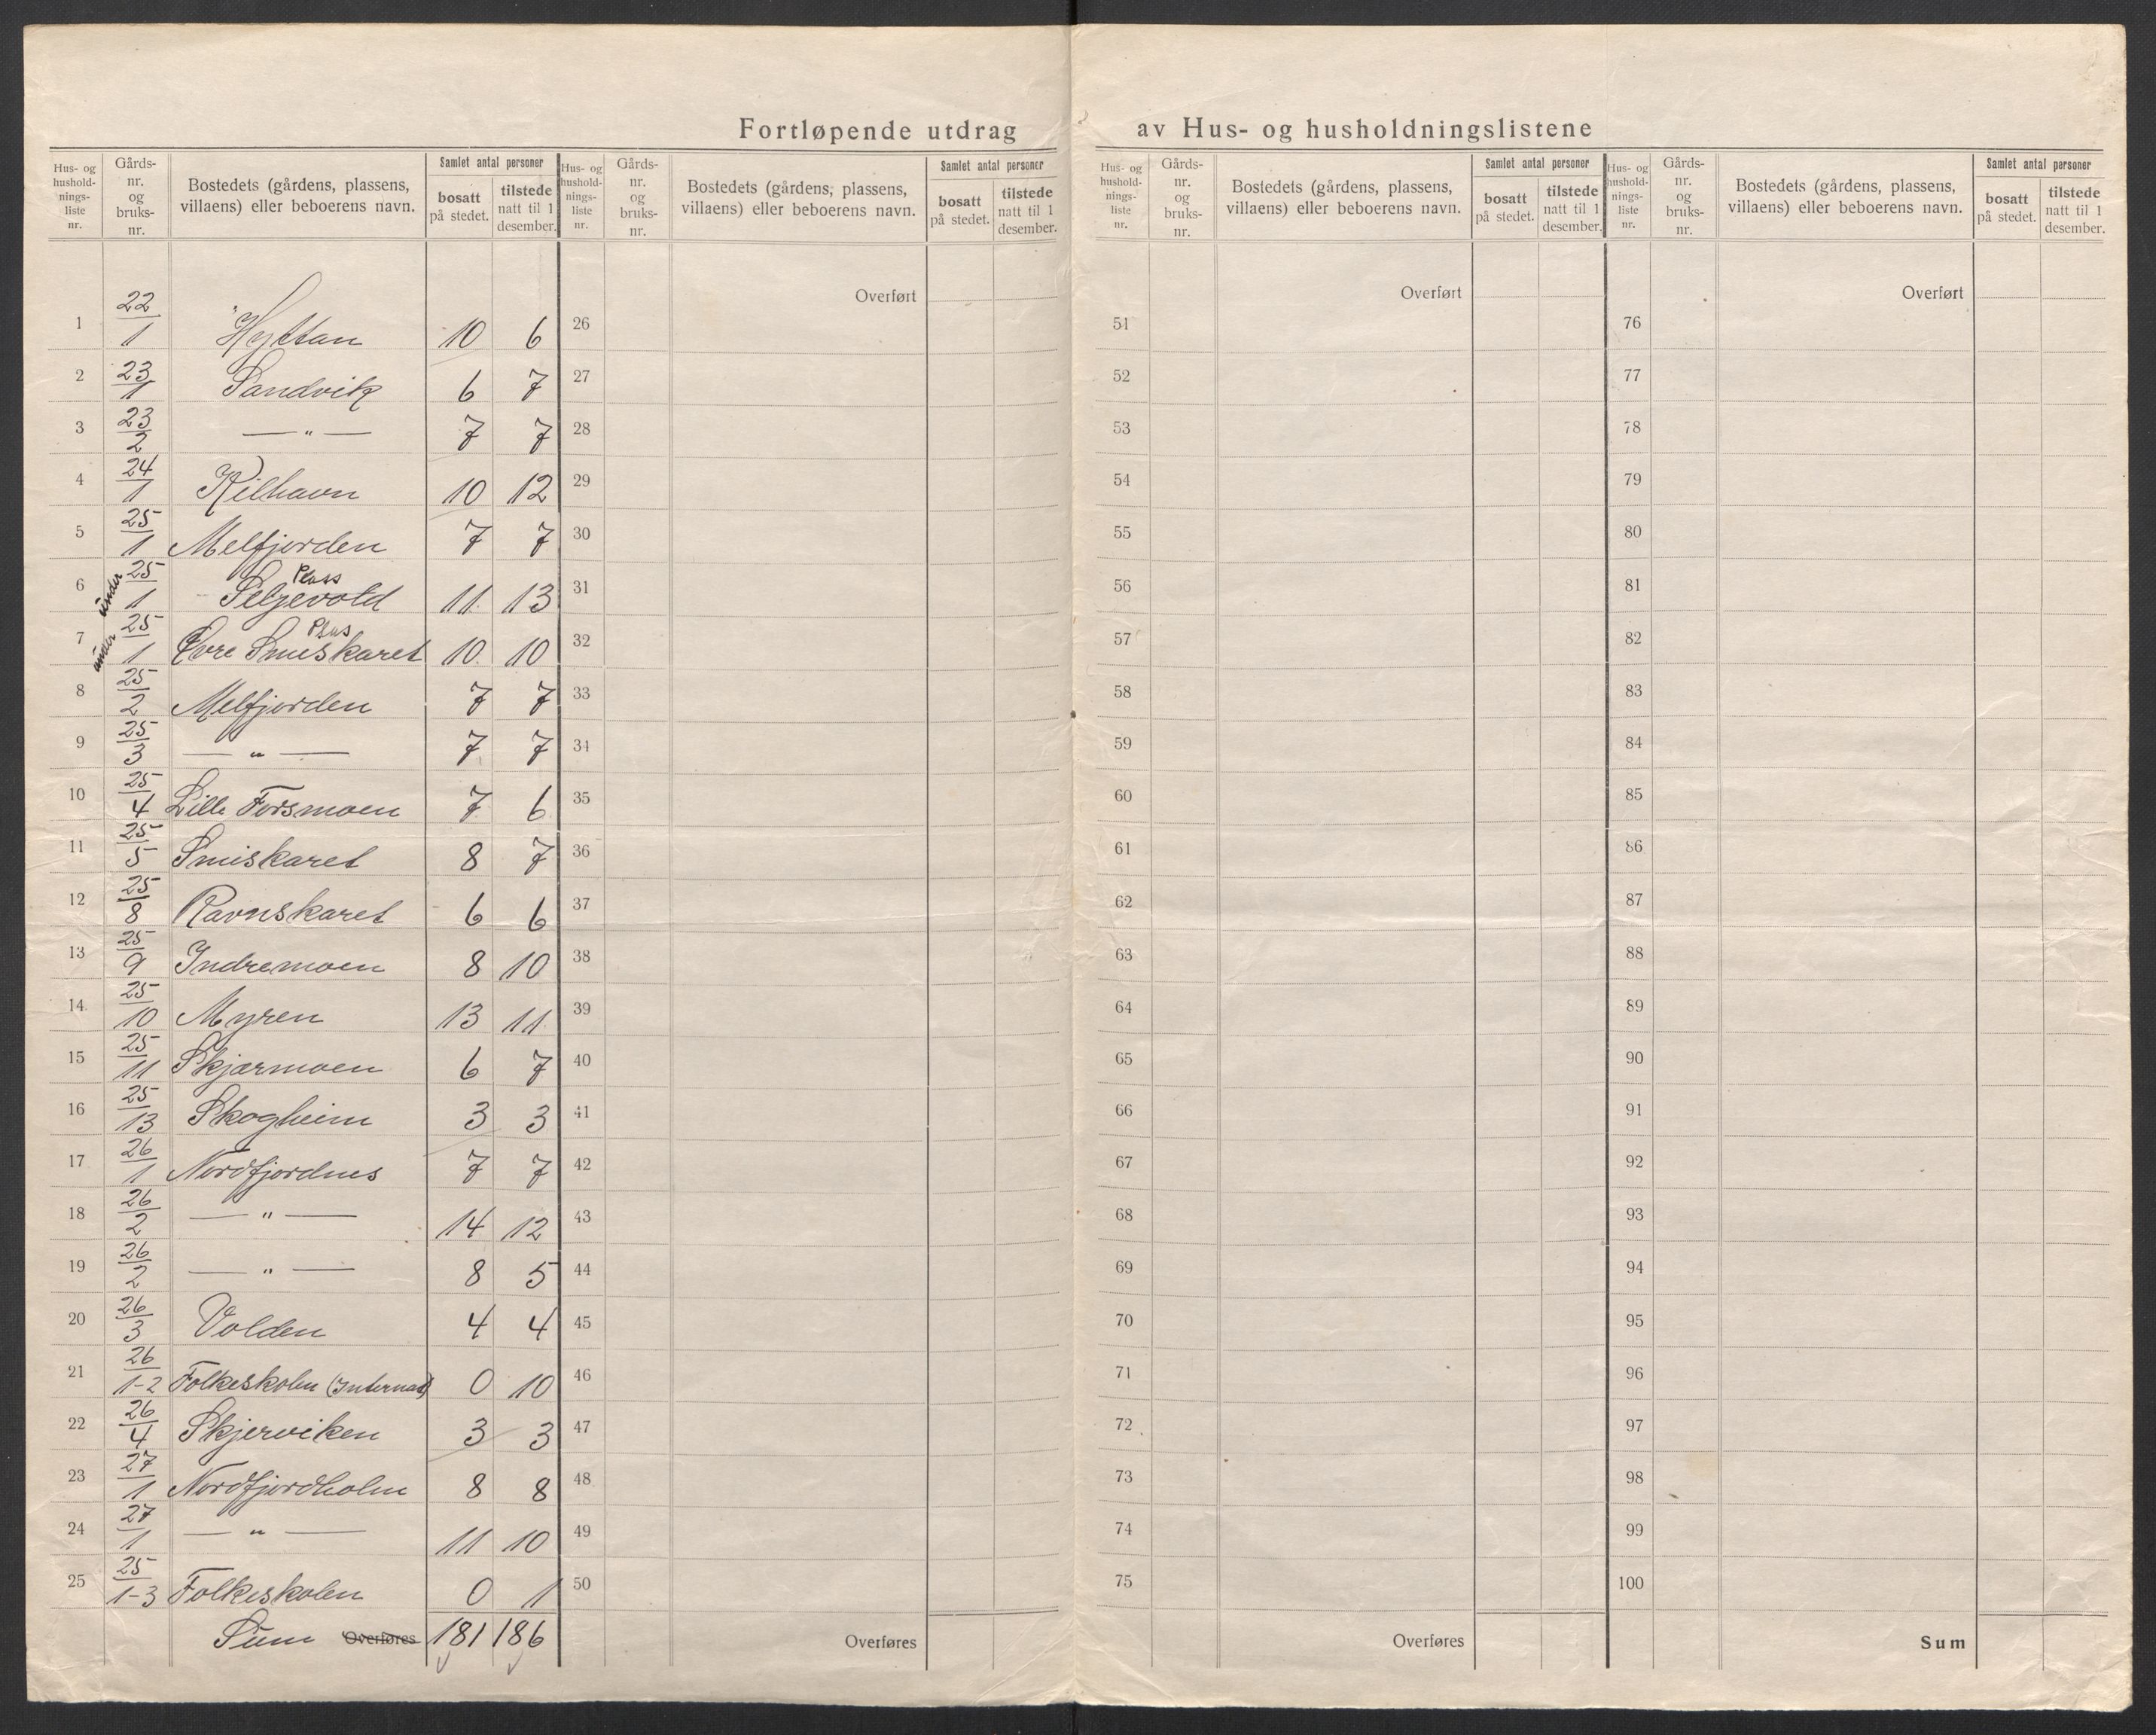 Fortløpende utdrag av Hus- og husholdningslistene
Hus- og hushold-nings-liste nr. | Gårds-nr. og bruks-nr. | Bostedets (gårdens, plassens, villaens) eller beboerens navn. | Samlet antal personer | bosatt på stedet. | tilstede natt til 1 desember.
1 22/1 Hyttan 10 6
2 23/1 Sandvik 6 7
3 23/2 — " — 7 7
4 24/1 Kilhavn 10 12
5 25/1 Melfjorden 7 7
6 under 25/1 Plass Seljevold 11 13
7 under 25/1 Plas Øvre Smiskaret 10 10
8 25/2 Melfjorden 7 7
9 25/3 — " — 7 7
10 25/4 Lille Forsmoen 7 6
11 25/5 Smiskaret 8 7
12 25/8 Ravnskaret 6 6
13 25/9 Indremoen 8 10
14 25/10 Myren 13 11
15 25/11 Skjærmoen 6 7
16 25/13 Skogheim 3 3
17 26/1 Nordfjordnes 7 7
18 26/2 — " — 14 12
19 26/2 — " — 8 5
20 26/3 Volden 4 4
21 26/1-2 Folkeskolen (Internat) 0 10
22 26/4 Skjerviken 3 3
23 27/1 Nordfjordholm 8 8
24 27/1 — " — 11 10
25 25/1-3 Folkeskolen 0 1
Sum Overføres 181 186
Hus- og hushold-nings-liste nr. | Gårds-nr. og bruks-nr. | Bostedets (gårdens, plassens, villaens) eller beboerens navn. | Samlet antal personer | bosatt på stedet. | tilstede natt til 1 desember.
Overført
26
27
28
29
30
31
32
33
34
35
36
37
38
39
40
41
42
43
44
45
46
47
48
49
50
Overføres
Hus- og hushold-nings-liste nr. | Gårds-nr. og bruks-nr. | Bostedets (gårdens, plassens, villaens) eller beboerens navn. | Samlet antal personer | bosatt på stedet. | tilstede natt til 1 desember.
Overført
51
52
53
54
55
56
57
58
59
60
61
62
63
64
65
66
67
68
69
70
71
72
73
74
75
Overføres
Hus- og hushold-nings-liste nr. | Gårds-nr. og bruks-nr. | Bostedets (gårdens, plassens, villaens) eller beboerens navn. | Samlet antal personer | bosatt på stedet. | tilstede natt til 1 desember.
Overført
76
77
78
79
80
81
82
83
84
85
86
87
88
89
90
91
92
93
94
95
96
97
98
99
100
Sum